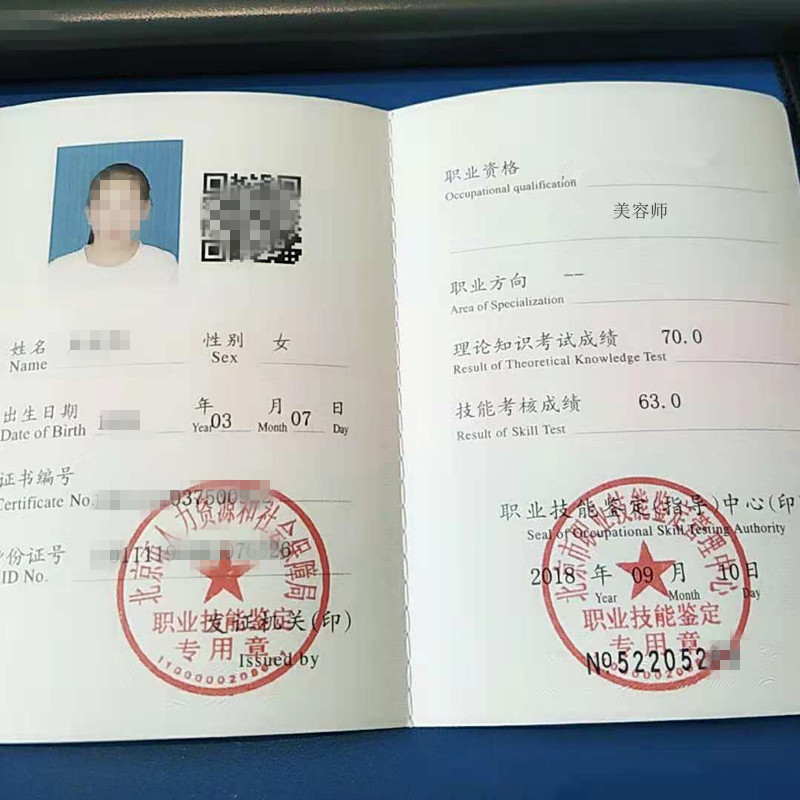 姓名
Name
性别 女
Sex
出生日期 年 03 月 07 日
Date of Birth Year Month Day
证书编号
Certificate No.
身份证号
ID No.
发证机关(印)
Issued by
人力资源和社会保障局
职业技能鉴定
专用章
职业资格
Occupational qualification
美容师
职业方向 --
Area of Specialization
理论知识考试成绩 70.0
Result of Theoretical Knowledge Test
技能考核成绩 63.0
Result of Skill Test
职业技能鉴定(指导)中心(印
Seal of Occupational Skill Testing Authority
2018 年 09 月 10 日
Year Month Day
北京市职业技能鉴定管理中心
职业技能鉴定
专用章
№.522052